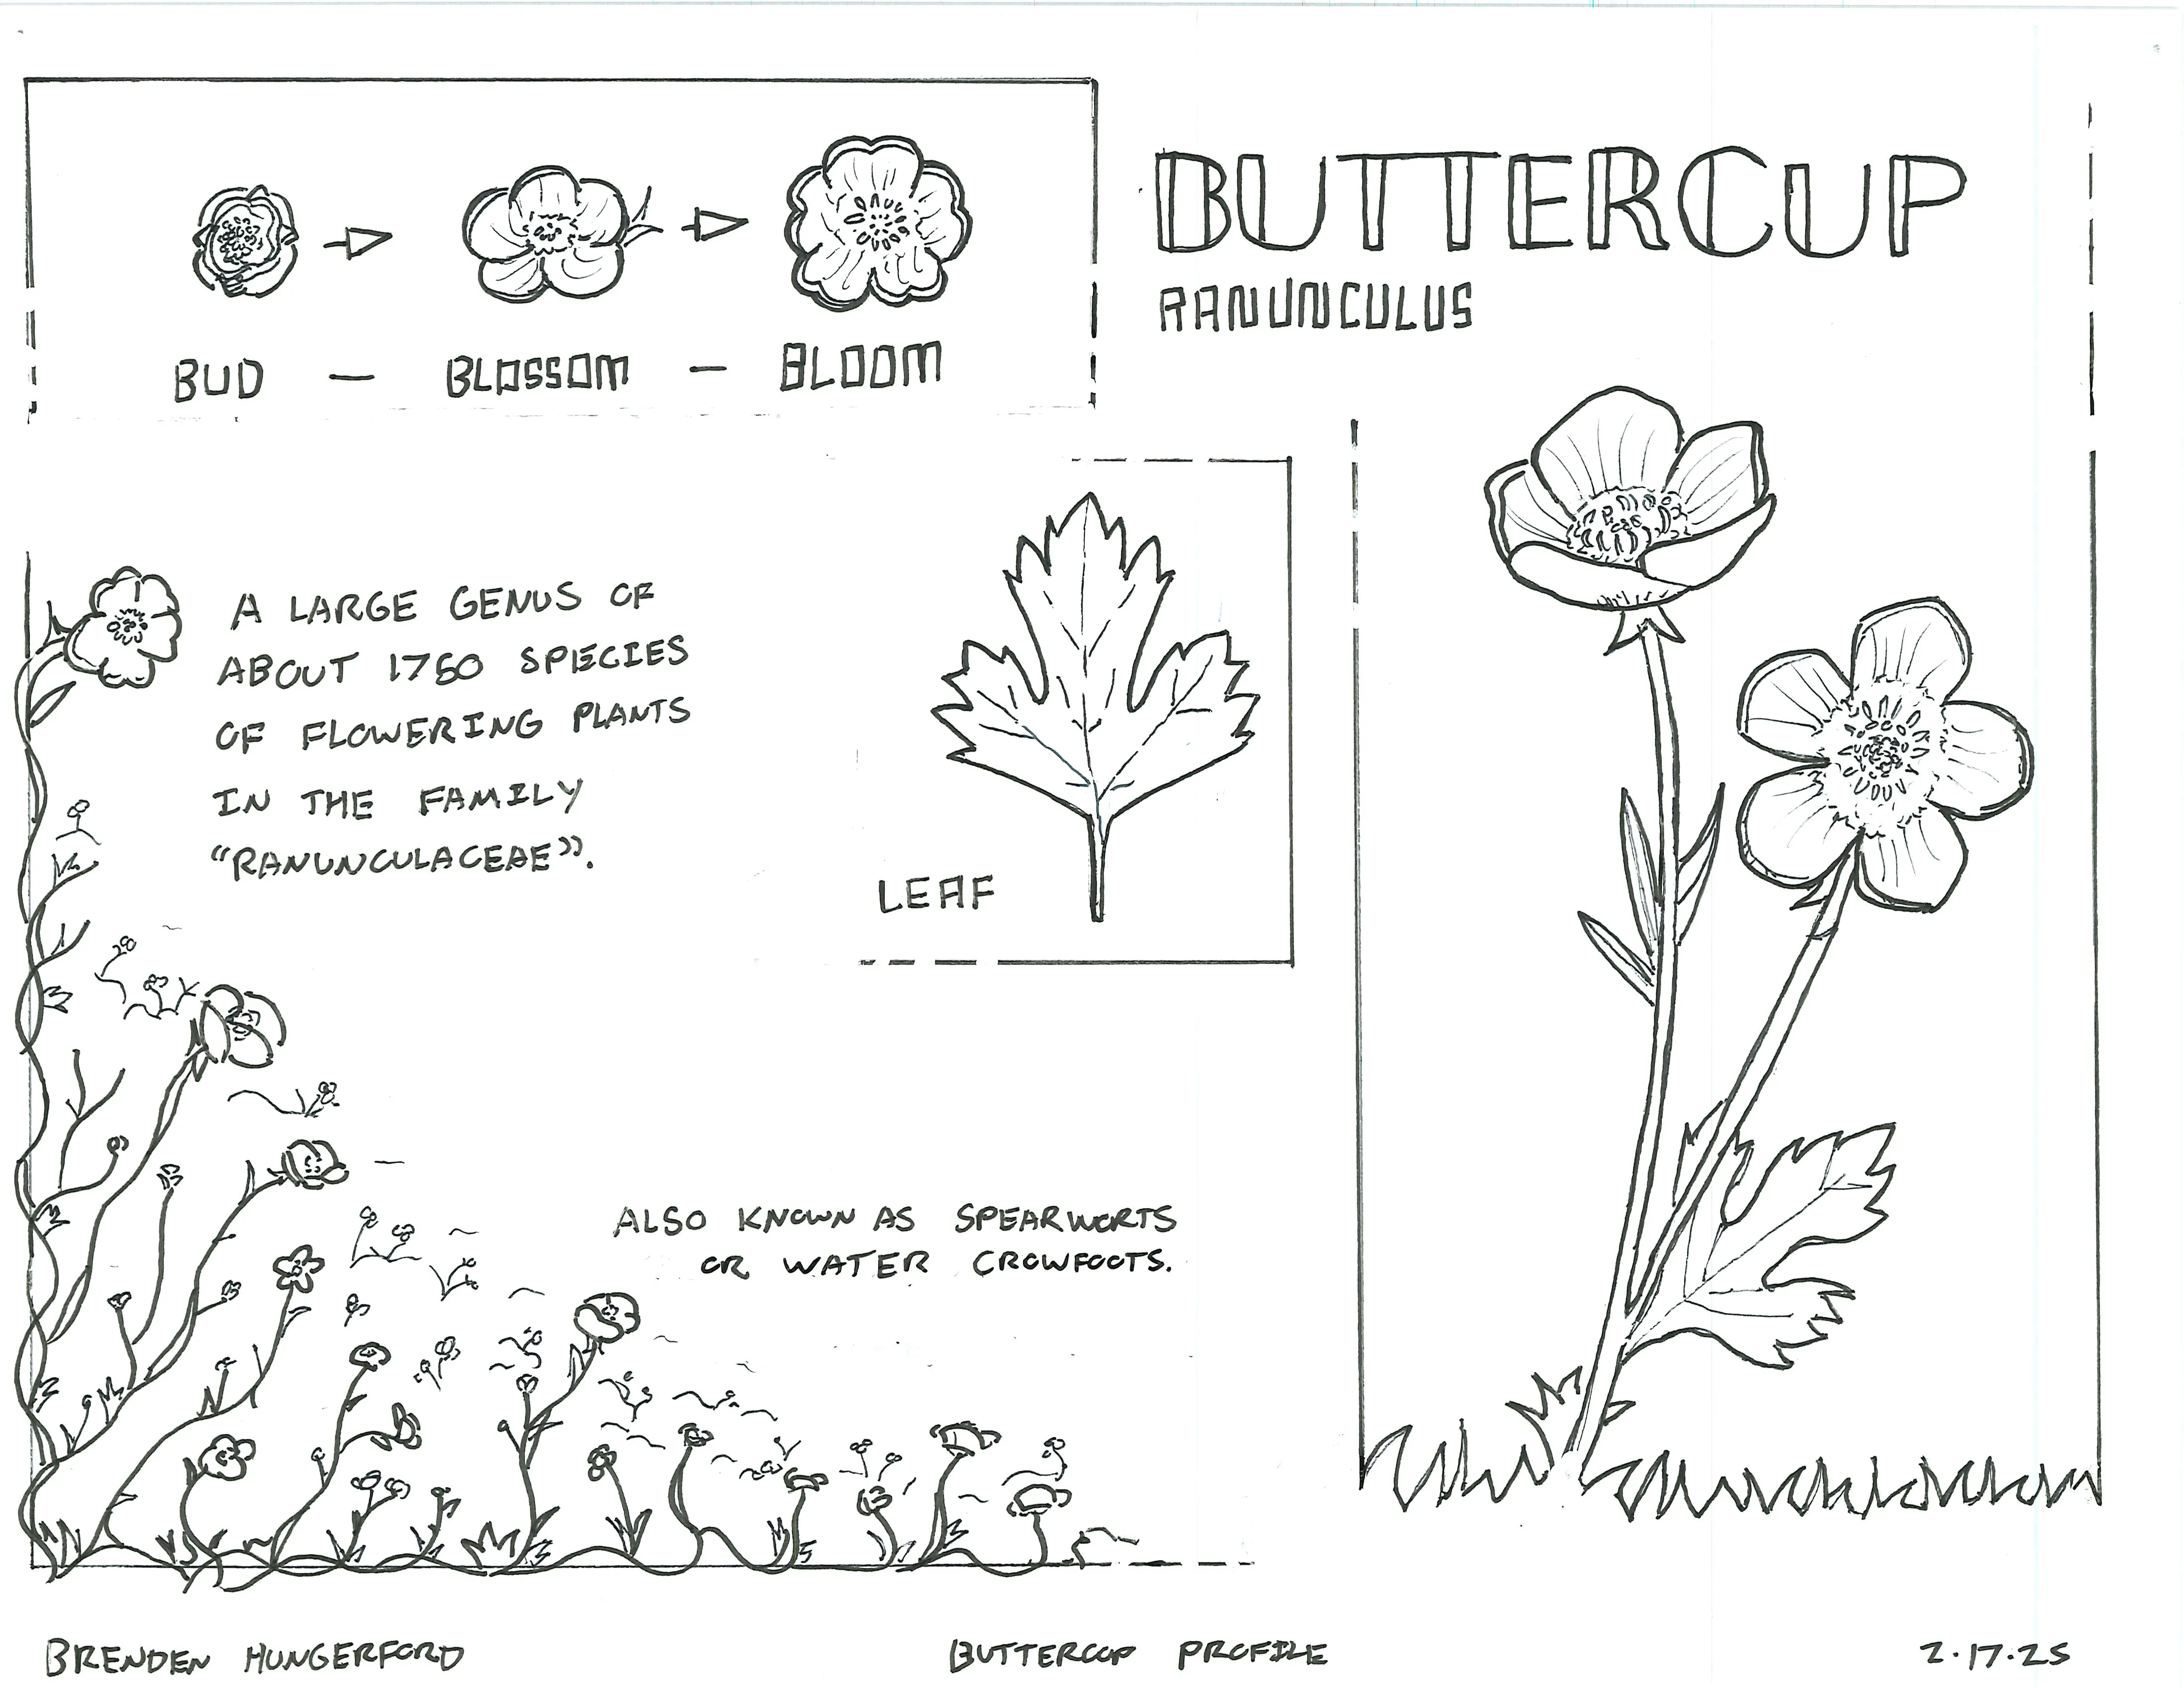 BUTTERCUP
RANUNCULUS
BUD – BLOSSOM – BLOOM
A LARGE GENUS OF
ABOUT 1750 SPECIES
OF FLOWERING PLANTS
IN THE FAMILY
"RANUNCULACEAE".
LEAF
ALSO KNOWN AS SPEARWORTS
OR WATER CROWFOOTS.
BRENDEN HUNGERFORD
BUTTERCUP PROFILE
2.17.25